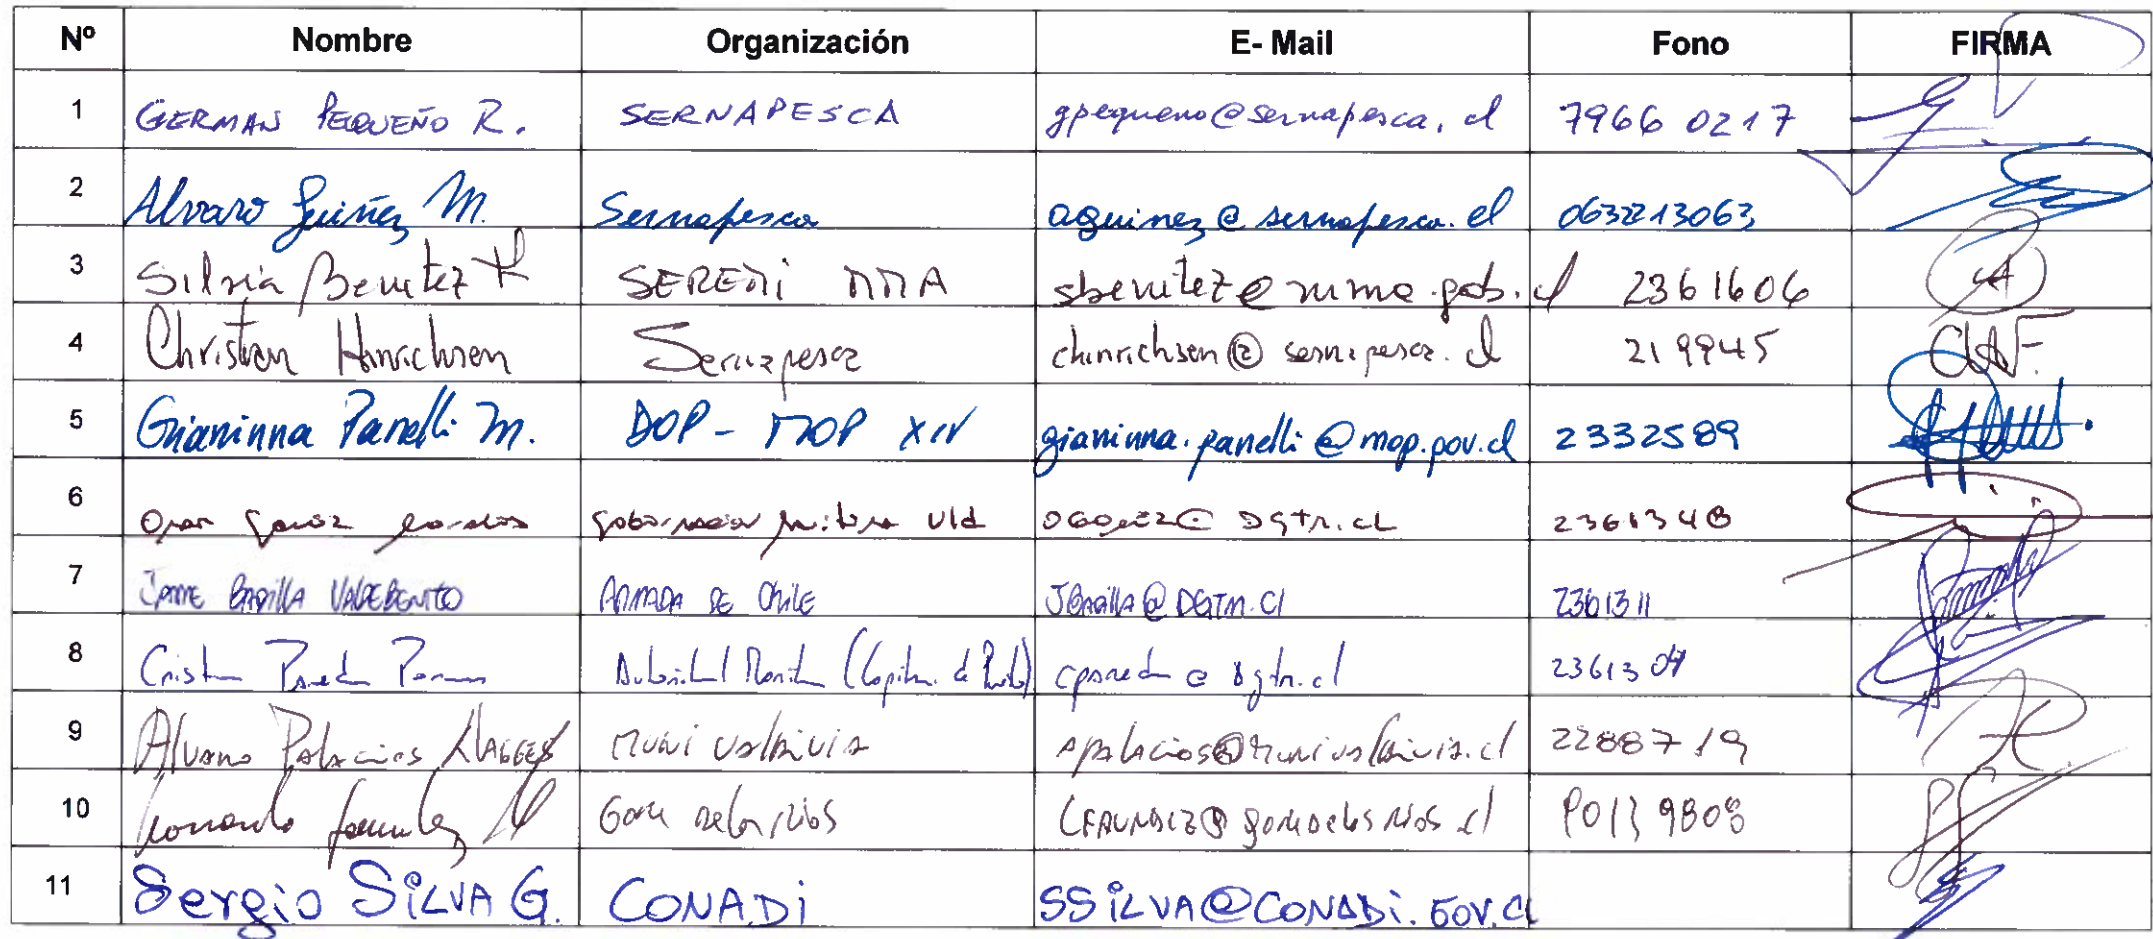 Nº Nombre Organización E- Mail Fono FIRMA
1 GERMAN PEQUEÑO R. SERNAPESCA gpequeno@sernapesca.cl 7966 0217
2 Alvaro Guiñez M. Sernapesca aguinez@sernapesca.cl 0632213063
3 Silvia Benitez H SEREMi MMA sbenitez@mma.gob.cl 2361606
4 Christian Hinrichsen Sernapesca chinrichsen@sernapesca.cl 219945
5 Gianinna Panelli M. DOP - MOP XIV gianinna.panelli@mop.gov.cl 2332589
6 gobernacion Vld 2361348
7 JAIME VALDEBENITO ARMADA DE CHILE @DGTM.Cl 2361311
8 (Capitan de Puerto) 2361307
9 Alvaro Palacios MUNi VAlDiViA APAlACiOS@MUNiVAlDiViA.cl 2288719
10 GORE de los Rios LFAUNDEZ@goredelosrios.cl 9808
11 Sergio SiLVA G. CONADi SSiLVA@CONADi.GOV.CL